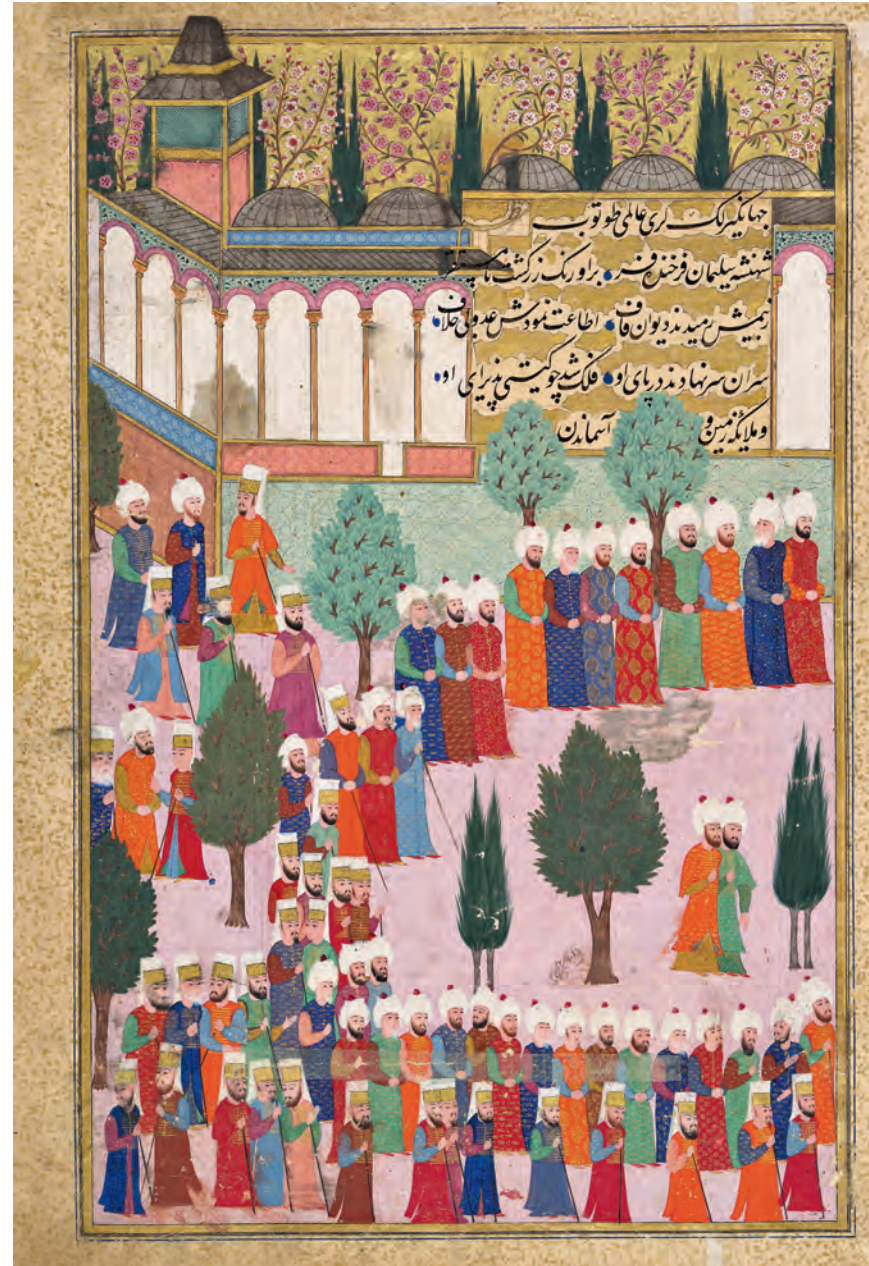 جهانگیرلک لری عالمی طوتوب
شهنشه سلیمان فرخنده فر • براورنک زرکشت
زبیمش رمیدند دیوان قاف • اطاعت نمودش عدوی خلاف •
سران سر نهادند در پای او • فلک شد چو کیتی پذیرای او •
و ملائکه زمین و آسماندن